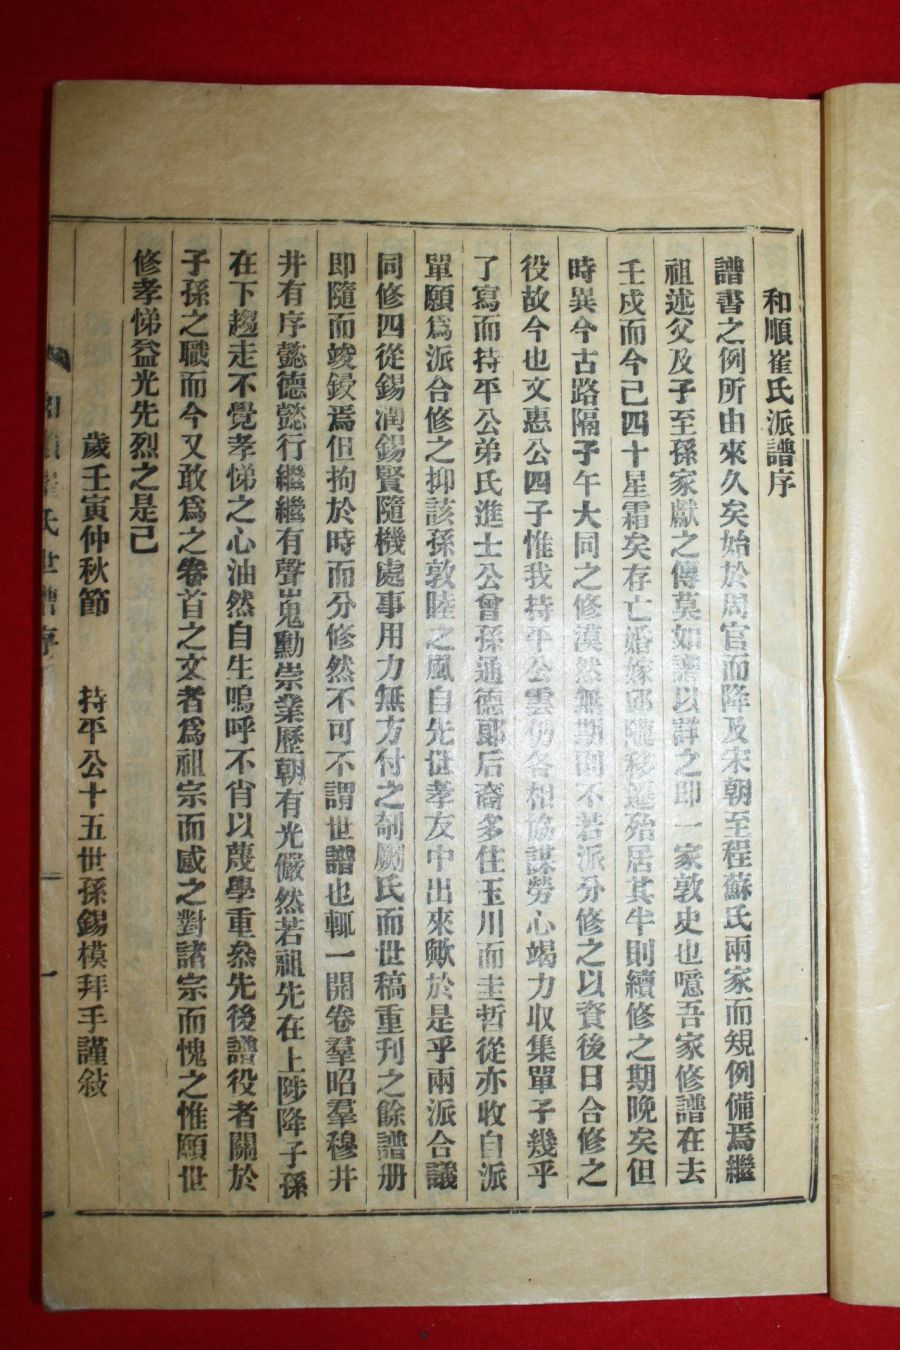 和順崔氏派譜序
譜書之例所由來久矣始於周官而降及宋朝至程蘇氏兩家而規例備焉繼
祖述父及子至孫家獻之傳莫如譜以詳之即一家敦史也噫吾家修譜在去
壬戌而今已四十星霜矣存亡婚嫁邱壠移遷殆居其半則續修之期晚矣但
時異今古路隔子午大同之修漠然無期圖不若派分修之以資後日合修之
役故今也文惠公四子惟我持平公雲仍各相協謀勞心竭力收集單子幾乎
了寫而持平公弟氏進士公曾孫通德郞后裔多住玉川而圭哲從亦收自派
單願爲派合修之抑該孫敦睦之風自先世孝友中出來歟於是乎兩派合議
同修四從錫潤錫賢隨機處事用力無方付之剞劂氏而世稿重刊之餘譜册
即隨而竣鋟焉但拘於時而分修然不可不謂世譜也輒一開卷羣昭羣穆井
井有序懿德懿行繼繼有聲嵬勳崇業歷朝有光儼然若祖先在上陟降子孫
在下趨走不覺孝悌之心油然自生嗚呼不肖以蔑學重叅先後譜役者關於
子孫之職而今又敢爲之卷首之文者爲祖宗而感之對諸宗而愧之惟願世
修孝悌益光先烈之是已
歲壬寅仲秋節 持平公十五世孫錫模拜手謹敍
氏世譜序
一